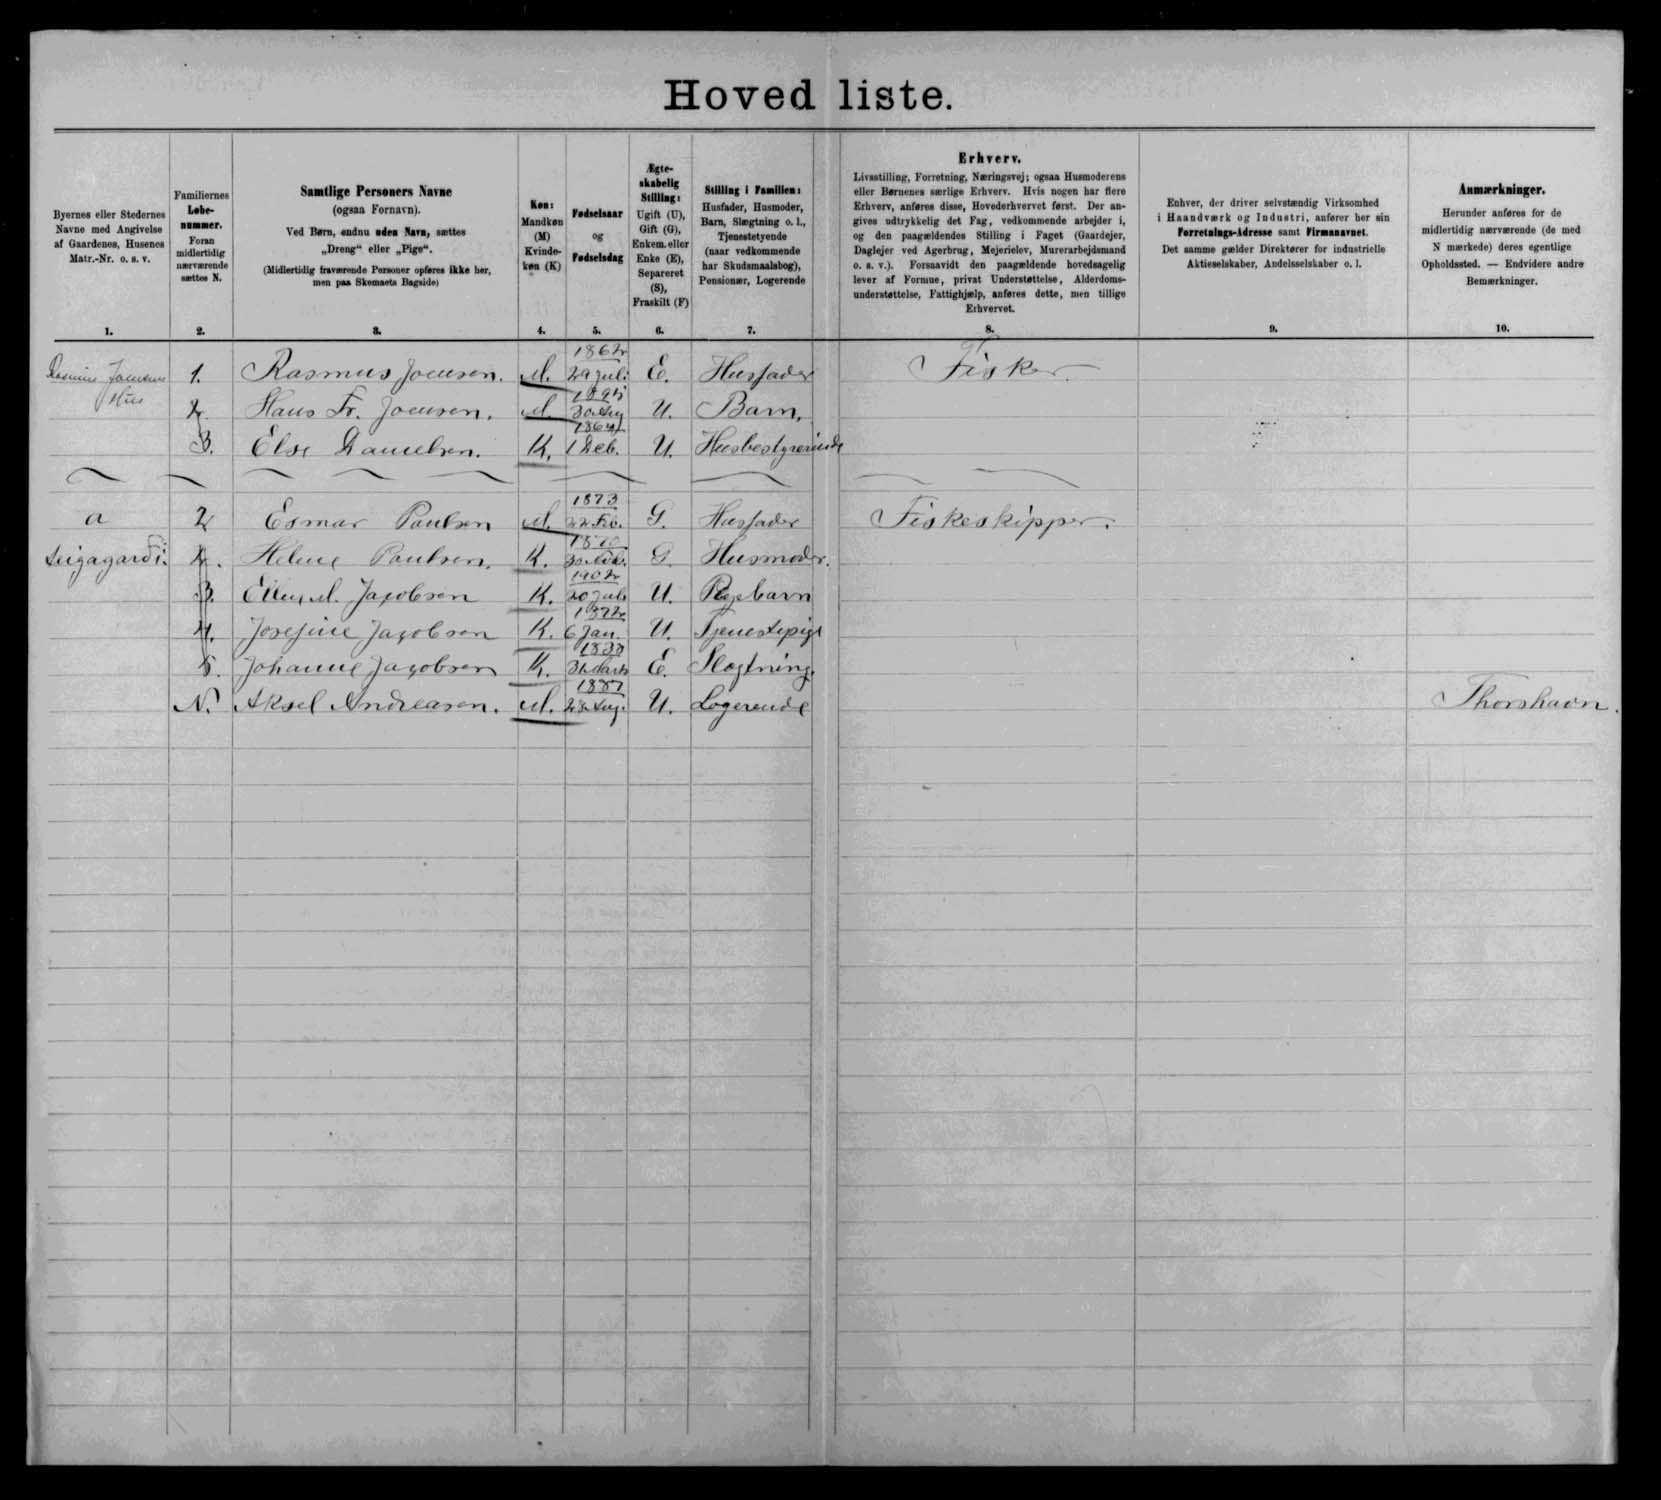 Hoved liste.
Byernes eller Stedernes
Navne med Angivelse
af Gaardenes, Husenes
Matr.-Nr. o. s. v.
1.
Familiernes
Løbe-
nummer.
Foran
midlertidig
nærværende
sættes N.
2.
Samtlige Personers Navne
(ogsaa Fornavn).
Ved Børn, endnu uden Navn, sættes
„Dreng“ eller „Pige“.
(Midlertidig fraværende Personer opføres ikke her,
men paa Skemaets Bagside)
3.
Køn:
Mandkøn
(M)
Kvinde-
køn (K)
4.
Fødselsaar
og
Fødselsdag
5.
Ægte-
skabelig
Stilling:
Ugift (U),
Gift (G),
Enkem. eller
Enke (E),
Separeret
(S),
Fraskilt (F)
6.
Stilling i Familien:
Husfader, Husmoder,
Barn, Slægtning o. l.,
Tjenestetyende
(naar vedkommende
har Skudsmaalsbog),
Pensionær, Logerende
7.
Erhverv.
Livsstilling, Forretning, Næringsvej; ogsaa Husmoderens
eller Børnenes særlige Erhverv. Hvis nogen har flere
Erhverv, anføres disse, Hovederhvervet først. Der an-
gives udtrykkelig det Fag, vedkommende arbejder i,
og den paagældendes Stilling i Faget (Gaardejer,
Daglejer ved Agerbrug, Mejerielev, Murerarbejdsmand
o. s. v.). Forsaavidt den paagældende hovedsagelig
lever af Formue, privat Understøttelse, Alderdoms-
understøttelse, Fattighjælp, anføres dette, men tillige
Erhvervet.
8.
Enhver, der driver selvstændig Virksomhed
i Haandværk og Industri, anfører her sin
Forretnings-Adresse samt Firmanavnet.
Det samme gælder Direktører for industrielle
Aktieselskaber, Andelsselskaber o. l.
9.
Anmærkninger.
Herunder anføres for de
midlertidig nærværende (de med
N mærkede) deres egentlige
Opholdssted. — Endvidere andre
Bemærkninger.
10.
Rasmus Joensens Hus 1. Rasmus Joensen. M. 1862 29 Juli E. Husfader Fisker.
2. Hans Fr. Joensen. M. 30 Aug U. Barn.
3. Else Danielsen. K. 1 Deb. U. Husbestyrerinde
a 2 Esmar Paulsen M. 1873 22 Feb. G. Husfader Fiskeskipper.
2. Helene Paulsen. K. G. Husmoder.
3. M. Jacobsen K. 1902 20 Juli U. Plejebarn
4. Josefine Jacobsen K. 6 Jan. U. Tjenestepige
5. Johanne Jacobsen K. E. Slægtning
N. Aksel Andreasen. M. 28 Aug. U. Logerende Thorshavn.